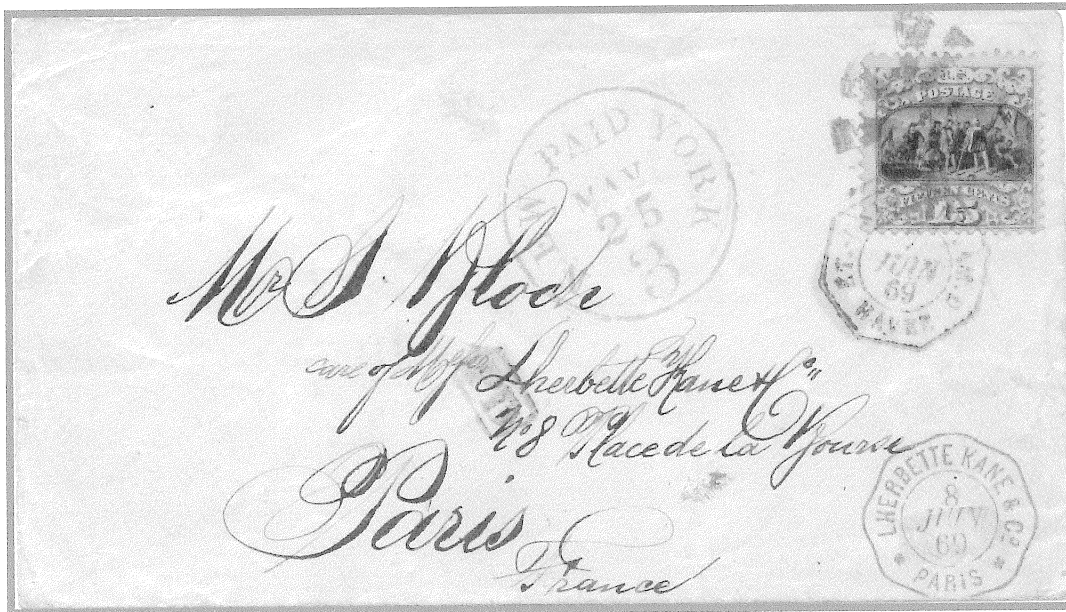 POSTAGE
FIFTEEN CENTS
15
PAID
NEW YORK
MAY
HAVRE
JUIN
69
Mr S. Bloch
care of Lherbette Kane & Co
No 8 Place de la Bourse
Paris
France
LHERBETTE KANE & CO
8
JUIN
69
PARIS